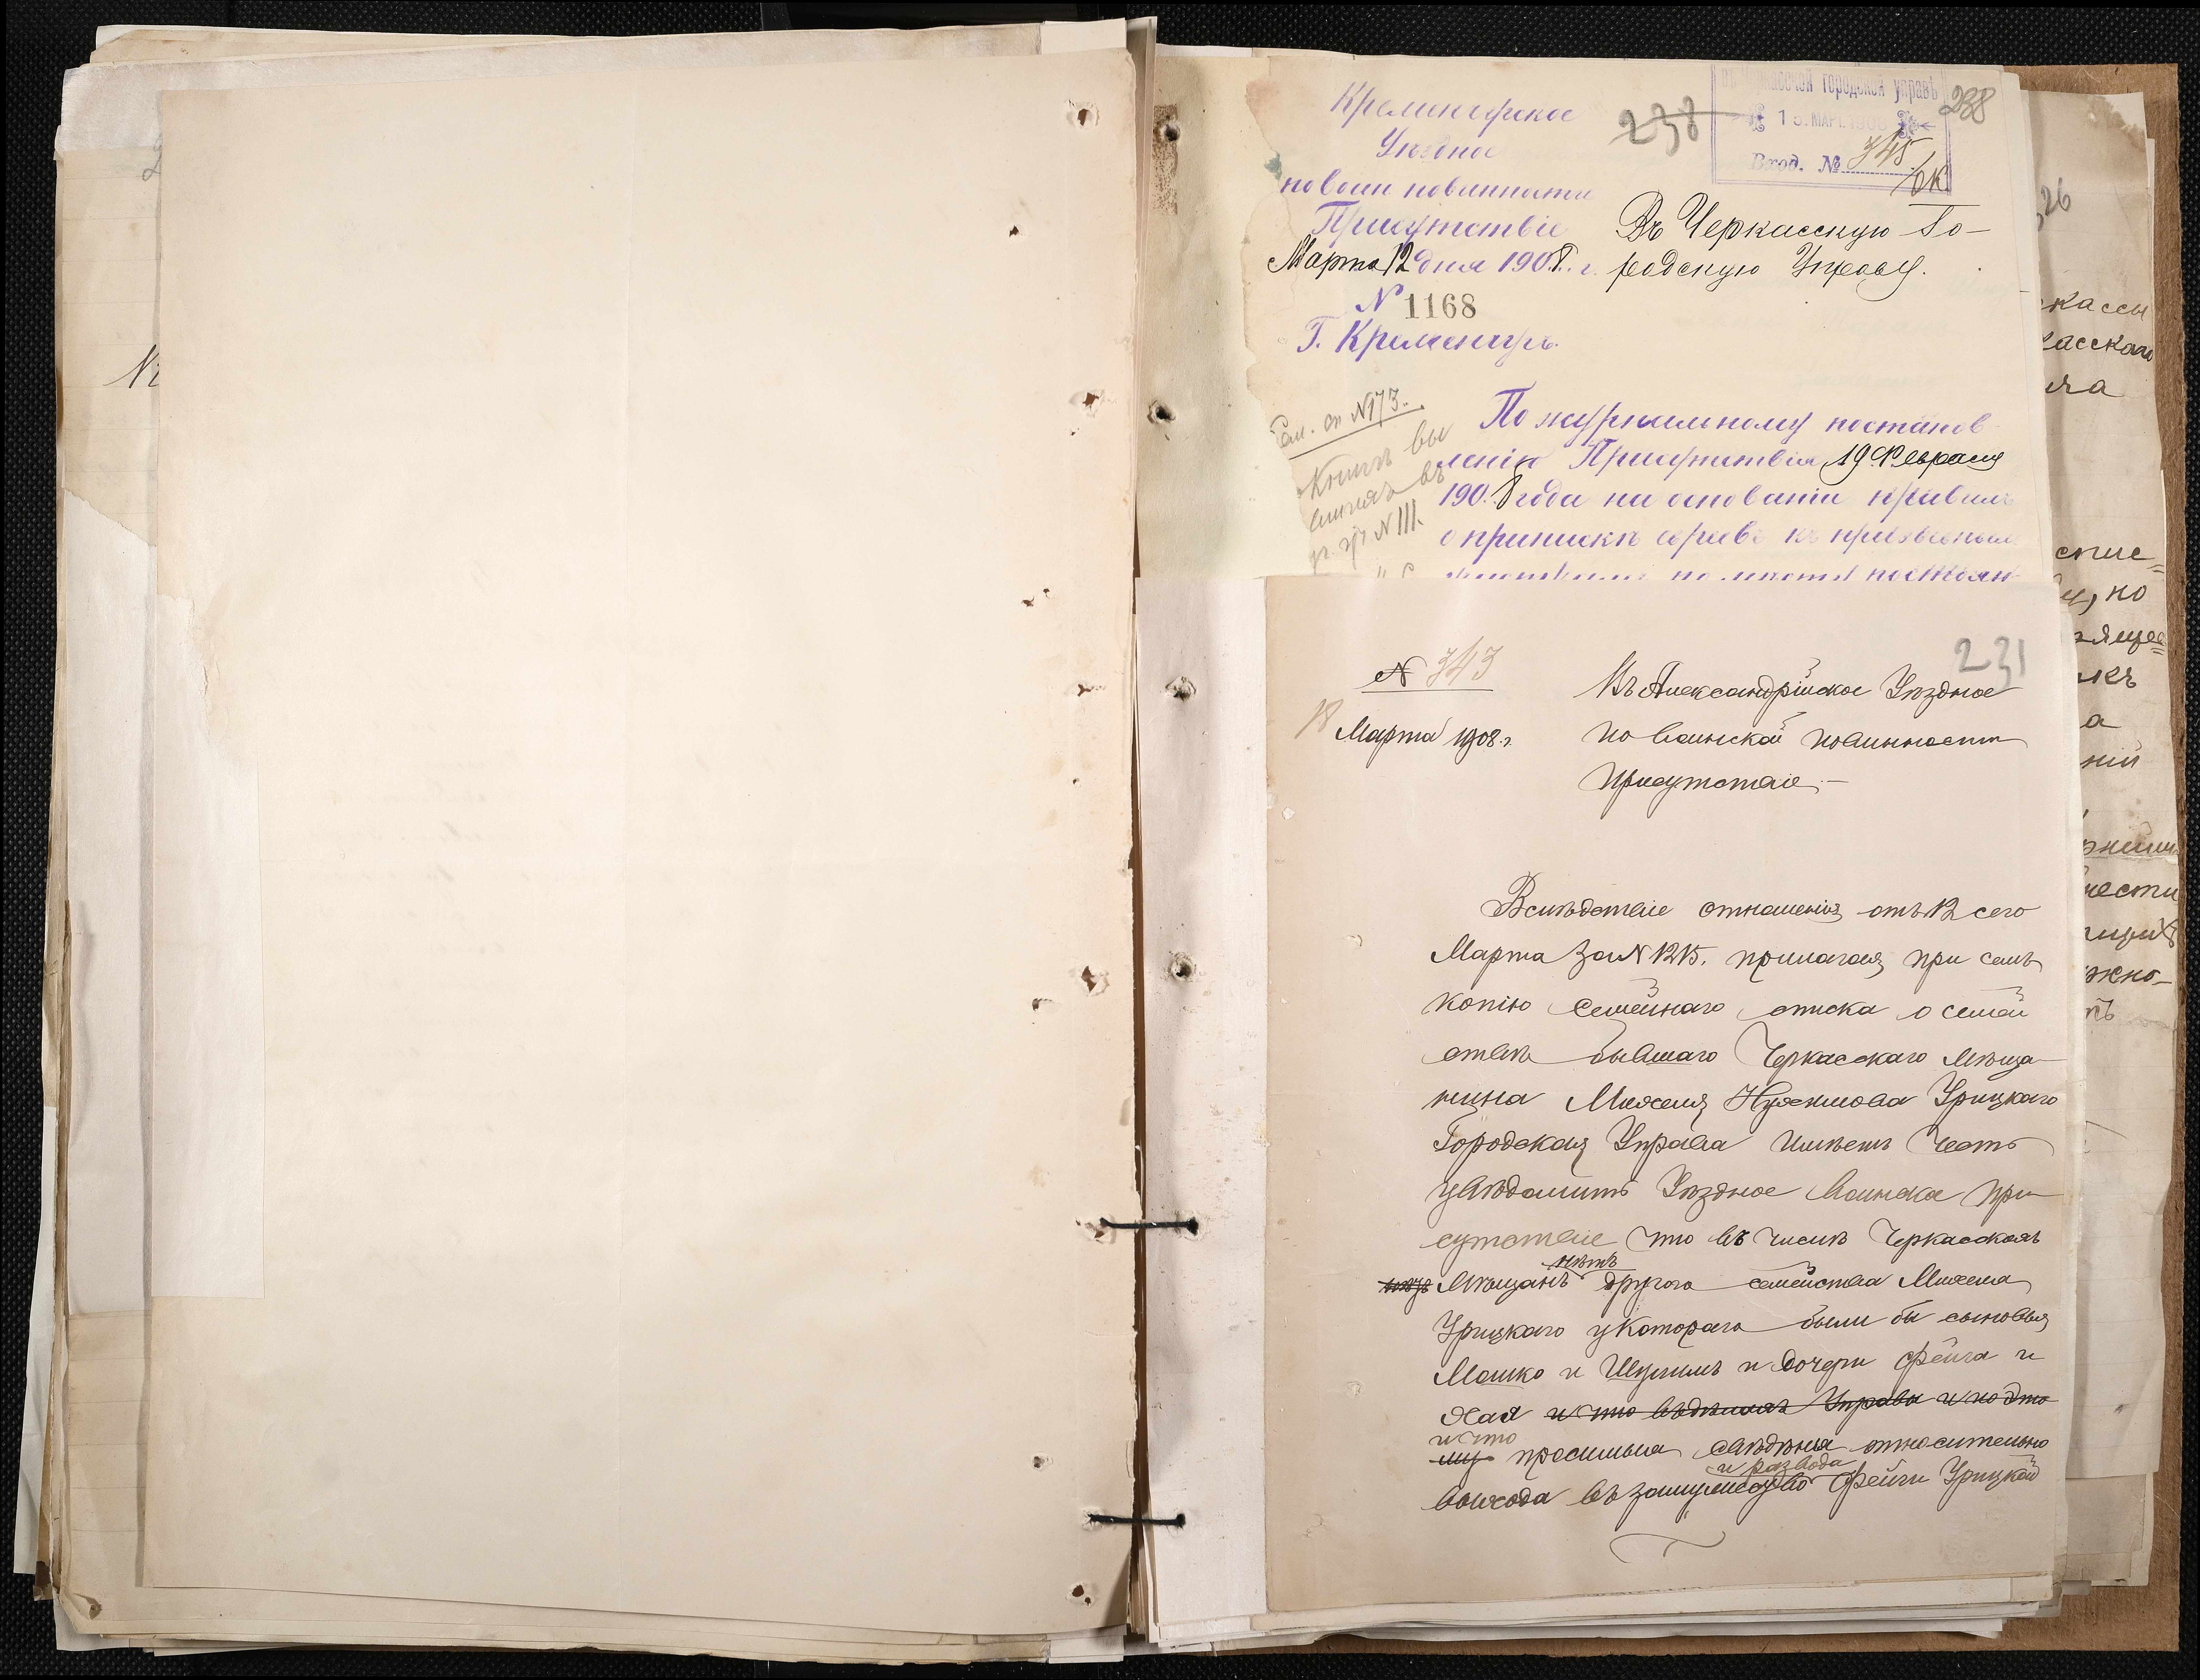 Кременецкое
Уѣздное
повоин повинности
Присутствіе
Марта 12 дня 1908. г.
N 1168
Г. Кременецъ.
238
Черкасской городской управѣ
1 МАРТ. 1908
Вход. № 345
238
Въ Черкасскую Го-
родскую Управу.
N 173.
N III.
По журнальному постанов
ленію Присутствія 19 Февраля
190.8 года на основаніи правилъ
о припискѣ евреевъ къ призывнымъ
участкамъ по мѣсту постоян
N 343
18 Марта 1908 г.
231
Въ Александрійское Уѣздное
по воинской повинности
Присутствіе.-
Вслѣдствіе отношенія отъ 12 сего
Марта за N 1215. прилагая при семъ
копію семейнаго списка о семей
ствѣ бывшаго Черкасскаго мѣща-
нина Михеля Урицкаго
Городская Управа имѣетъ честь
увѣдомить Уѣздное Воинское При-
сутствіе что въ числѣ Черкасскихъ
мѣщанъ нѣтъ другого семейства Михеля
Урицкаго у котораго были бы сыновья
Мошко и Шулимъ и дочери Фейга и
Хая и что
просимыя свѣдѣнія относительно
выхода въ замужество и развода Фейги Урицкой
N
26
кассы
касскаго
спис=
но
а
ній
ности
жно-